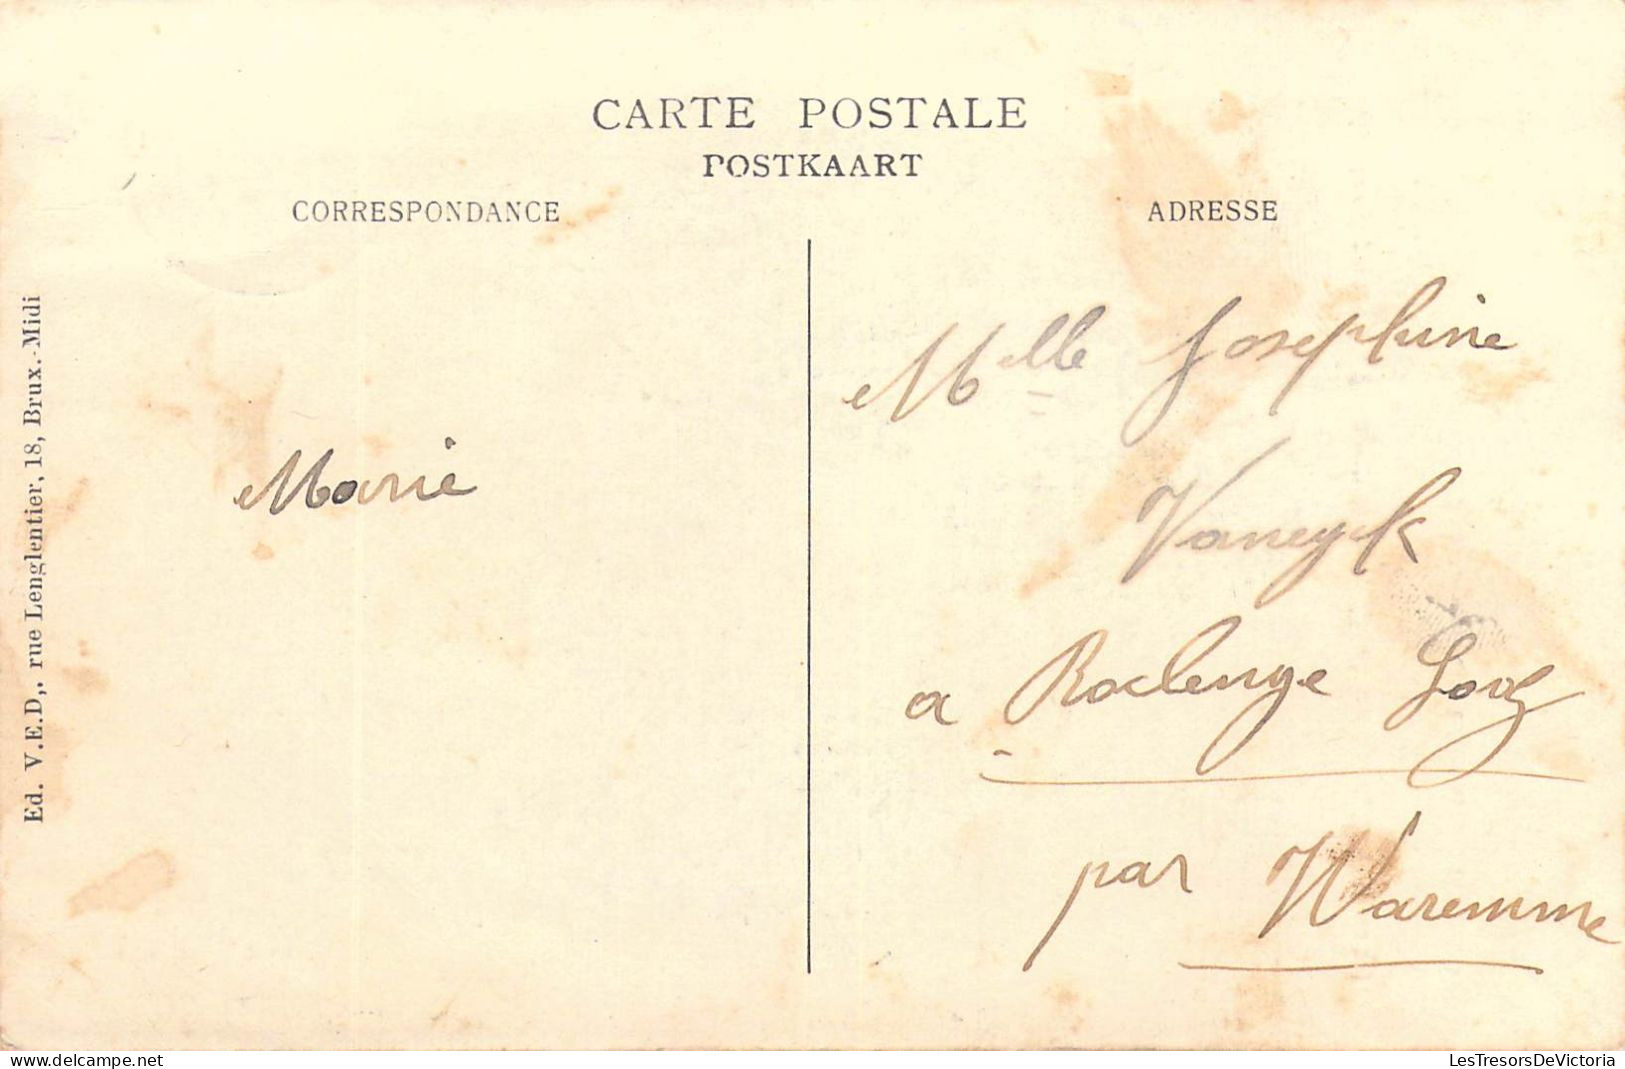 CARTE POSTALE
POSTKAART
CORRESPONDANCE
ADRESSE
Ed. V.E.D., rue Lenglentier, 18, Brux.-Midi
Marie
Mlle Josephine
Vaneyck
a Roclenge Looz
par Waremme
www.delcampe.net
LesTresorsDeVictoria